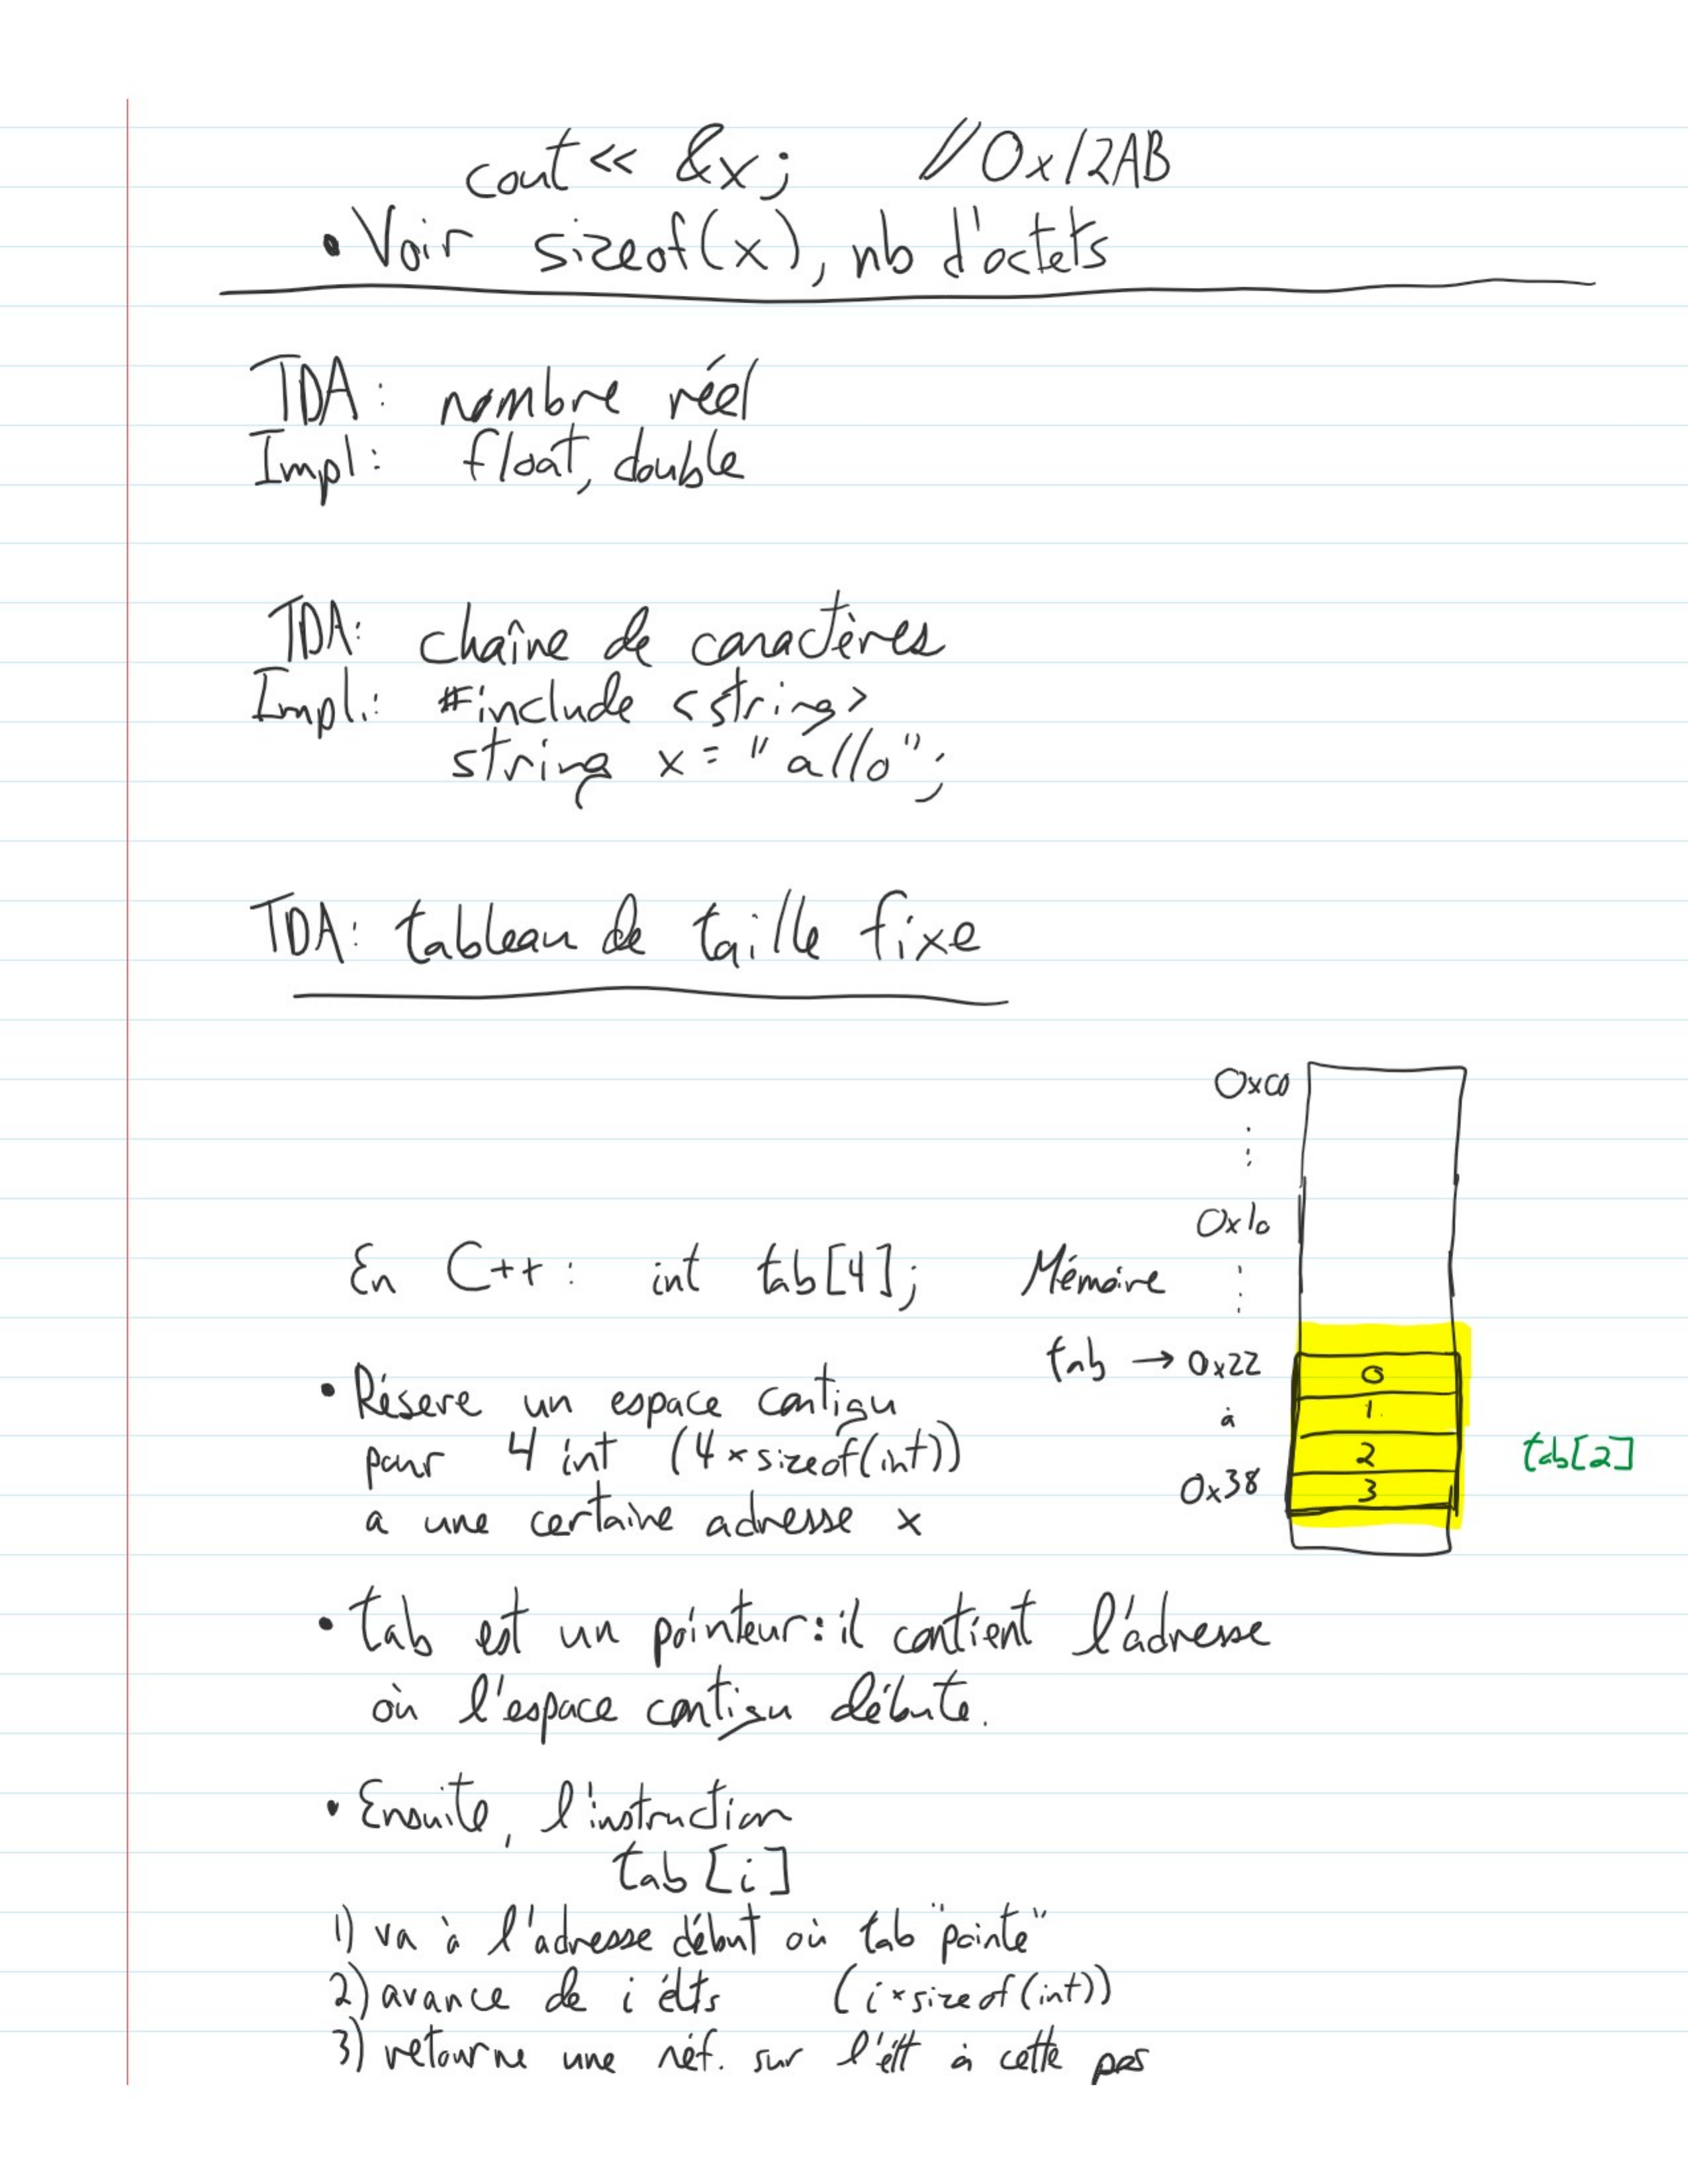 cout << &x; //0x12AB
• Voir sizeof(x), nb d'octets
TDA: nombre réel
Impl: float, double
TDA: chaîne de caractères
Impl.: #include <string>
string x = "allo";
TDA: tableau de taille fixe
0x00
⋮
0x10
En C++: int tab[4]; Mémoire ⋮
tab → 0x22 0
à 1
2 tab[2]
0x38 3
• Réserve un espace contigu
pour 4 int (4 × sizeof(int))
a une certaine adresse x
• tab est un pointeur: il contient l'adresse
où l'espace contigu débute.
• Ensuite, l'instruction
tab[i]
1) va à l'adresse début où tab "pointe"
2) avance de i élts (i × sizeof(int))
3) retourne une réf. sur l'élt à cette pos